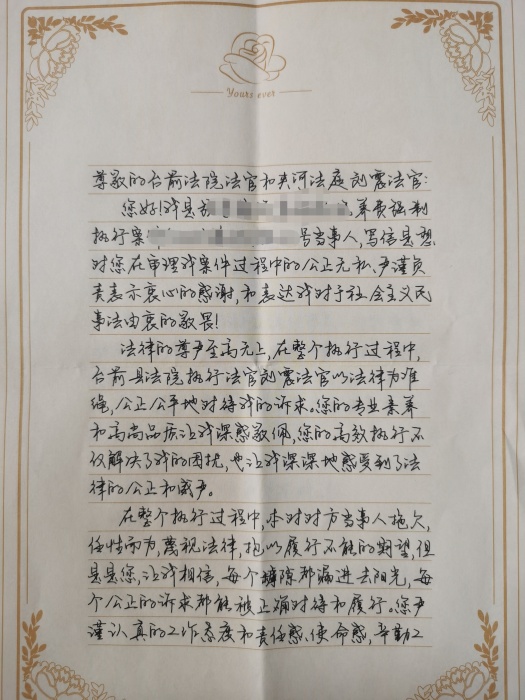 Yours ever
尊敬的台前法院法官和夹河法庭刘震法官:
您好!我是 养费强制
执行案 号当事人,写信是想
对您在审理我案件过程中的公正无私、严谨负
责表示衷心的感谢,和表达我对于社会主义民
事法由衷的敬畏!
法律的尊严至高无上,在整个执行过程中,
台前县法院执行法官刘震法官以法律为准
绳,公正公平地对待我的诉求。您的专业素养
和高尚品质让我深感敬佩,您的高效执行不
仅解决了我的困扰,也让我深深地感受到了法
律的公正和威严。
在整个执行过程中,本对对方当事人拖欠,
任性而为,蔑视法律,抱以履行不能的期望,但
是是您,让我相信,每个罅隙都漏进去阳光,每
个公正的诉求都能被正确对待和履行。您严
谨认真的工作态度和责任感、使命感,辛勤工